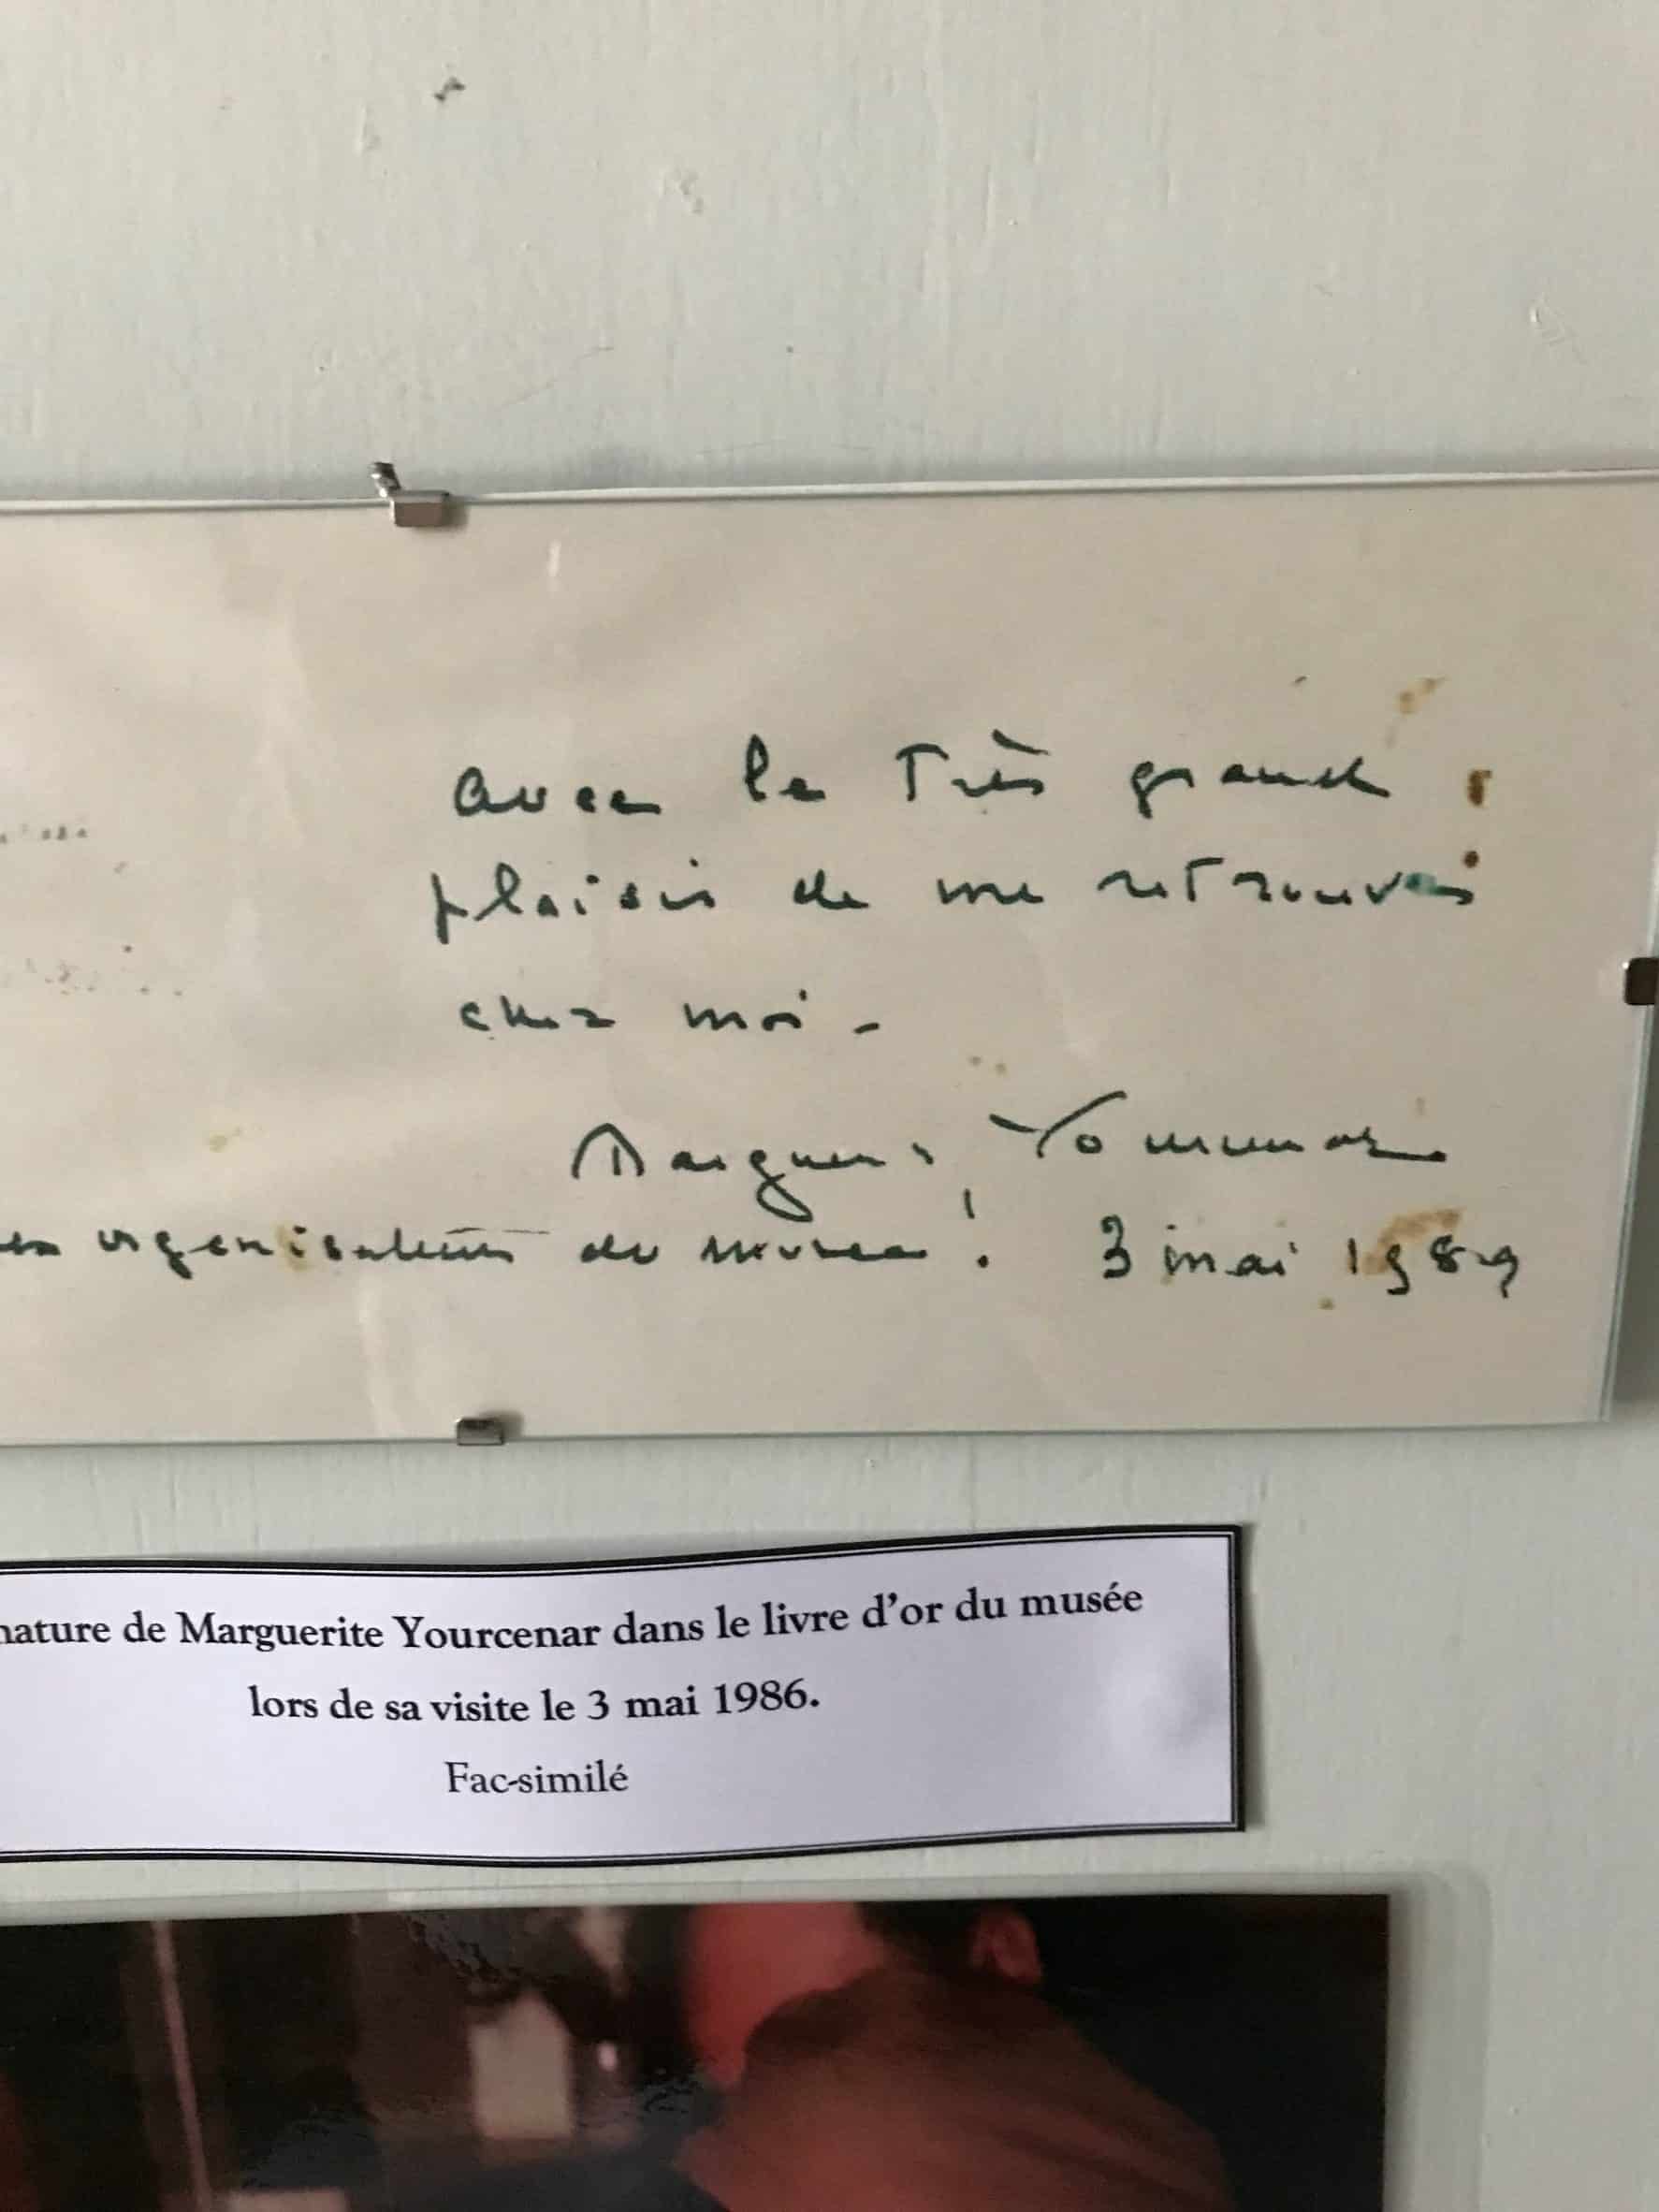 avec le très grand
plaisir de me retrouver
chez moi -
Marguerite Yourcenar
organisateurs du musée ! 3 mai 1989
nature de Marguerite Yourcenar dans le livre d'or du musée
lors de sa visite le 3 mai 1986.
Fac-similé